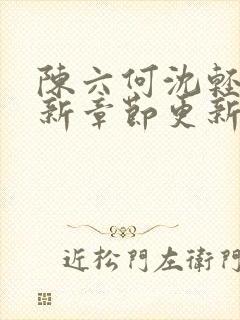 陳六何沈輕
新章節更新
近松門左衛門